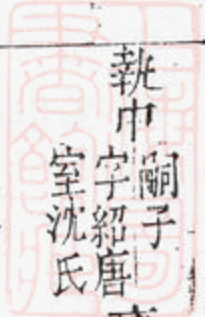 執中
嗣子
字紹唐
室沈氏